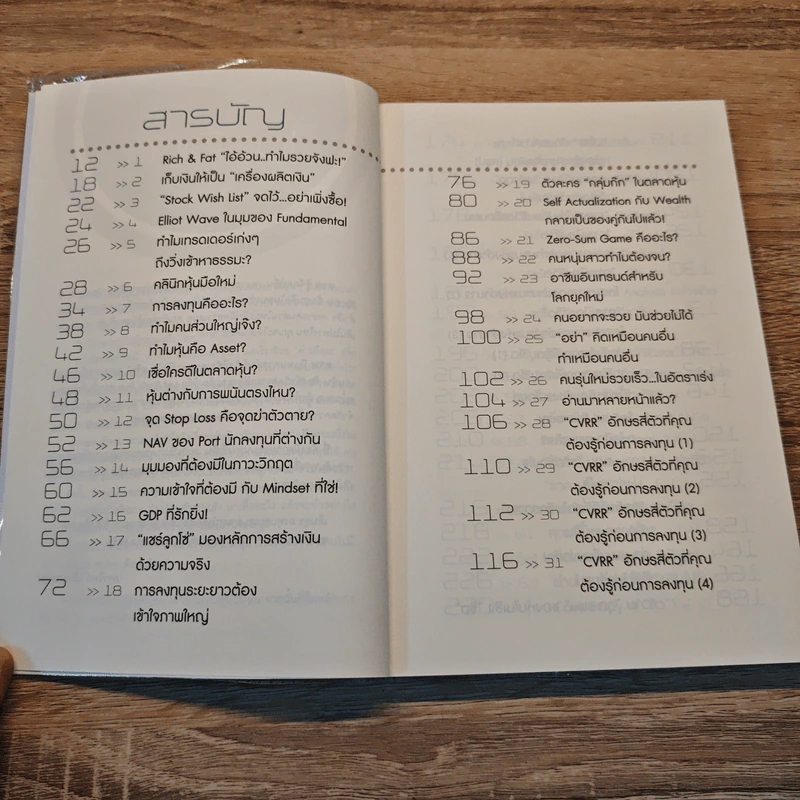 สารบัญ
12 >> 1 Rich & Fat "ไอ้อ้วน..ทำไมรวยจังฟะ!"
18 >> 2 เก็บเงินให้เป็น "เครื่องผลิตเงิน"
22 >> 3 "Stock Wish List" จดไว้...อย่าเพิ่งซื้อ!
24 >> 4 Elliot Wave ในมุมของ Fundamental
26 >> 5 ทำไมเทรดเดอร์เก่งๆ
ถึงวิ่งเข้าหาธรรมะ?
28 >> 6 คลินิกหุ้นมือใหม่
34 >> 7 การลงทุนคืออะไร?
38 >> 8 ทำไมคนส่วนใหญ่เจ๊ง?
42 >> 9 ทำไมหุ้นคือ Asset?
46 >> 10 เชื่อใครดีในตลาดหุ้น?
48 >> 11 หุ้นต่างกับการพนันตรงไหน?
50 >> 12 จุด Stop Loss คือจุดฆ่าตัวตาย?
52 >> 13 NAV ของ Port นักลงทุนที่ต่างกัน
56 >> 14 มุมมองที่ต้องมีในภาวะวิกฤต
60 >> 15 ความเข้าใจที่ต้องมี กับ Mindset ที่ใช่!
62 >> 16 GDP ที่รักยิ่ง!
66 >> 17 "แชร์ลูกโซ่" มองหลักการสร้างเงิน
ด้วยความจริง
72 >> 18 การลงทุนระยะยาวต้อง
เข้าใจภาพใหญ่
76 >> 19 ตัวละคร "กลุ่มกึก" ในตลาดหุ้น
80 >> 20 Self Actualization กับ Wealth
กลายเป็นของคู่กันไปแล้ว!
86 >> 21 Zero-Sum Game คืออะไร?
88 >> 22 คนหนุ่มสาวทำไมต้องจน?
92 >> 23 อาชีพอินเทรนด์สำหรับ
โลกยุคใหม่
98 >> 24 คนอยากจะรวย มันช่วยไม่ได้
100 >> 25 "อย่า" คิดเหมือนคนอื่น
ทำเหมือนคนอื่น
102 >> 26 คนรุ่นใหม่รวยเร็ว...ในอัตราเร่ง
104 >> 27 อ่านมาหลายหน้าแล้ว?
106 >> 28 "CVRR" อักษรสี่ตัวที่คุณ
ต้องรู้ก่อนการลงทุน (1)
110 >> 29 "CVRR" อักษรสี่ตัวที่คุณ
ต้องรู้ก่อนการลงทุน (2)
112 >> 30 "CVRR" อักษรสี่ตัวที่คุณ
ต้องรู้ก่อนการลงทุน (3)
116 >> 31 "CVRR" อักษรสี่ตัวที่คุณ
ต้องรู้ก่อนการลงทุน (4)